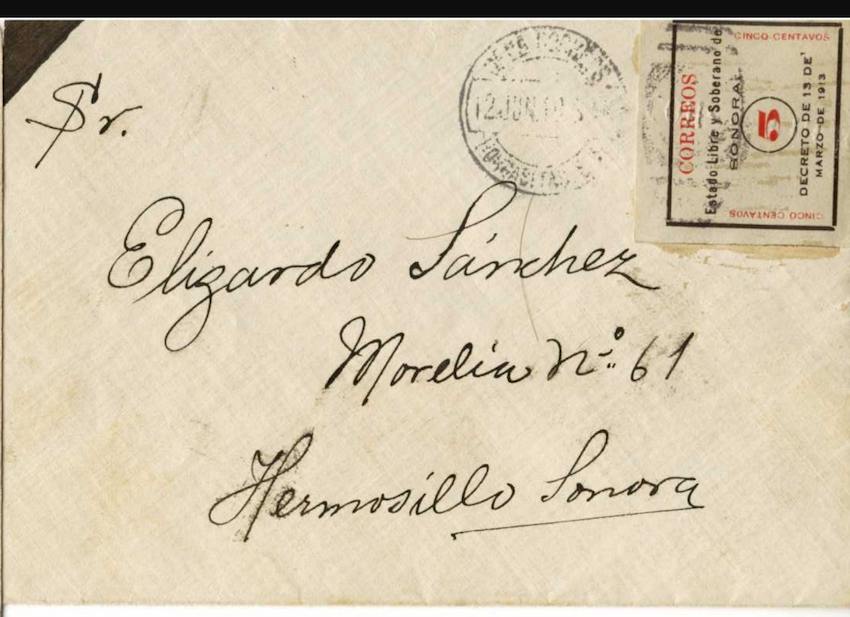 Sr.
Elizardo Sánchez
Morelia No. 61
Hermosillo Sonora
CINCO CENTAVOS
CORREOS
Estado Libre y Soberano de
SONORA
5
DECRETO DE 13 DE
MARZO DE 1913
CINCO CENTAVOS